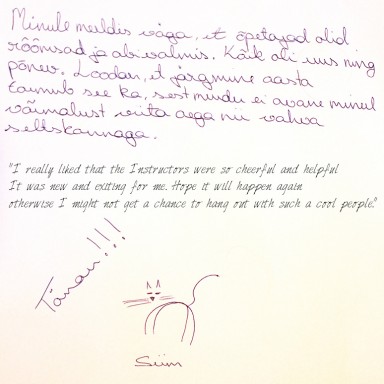 Minule meeldis väga, et õpetajad olid
rõõmsad ja abivalmis. Kõik oli uus ning
põnev. Loodan, et järgmine aasta
toimub see ka, sest muidu ei avane minul
võimalust veeta aega nii vahva
seltskonnaga.
"I really liked that the Instructors were so cheerful and helpful
It was new and exiting for me. Hope it will happen again
otherwise I might not get a chance to hang out with such a cool people."
Tänan!!!
Siim